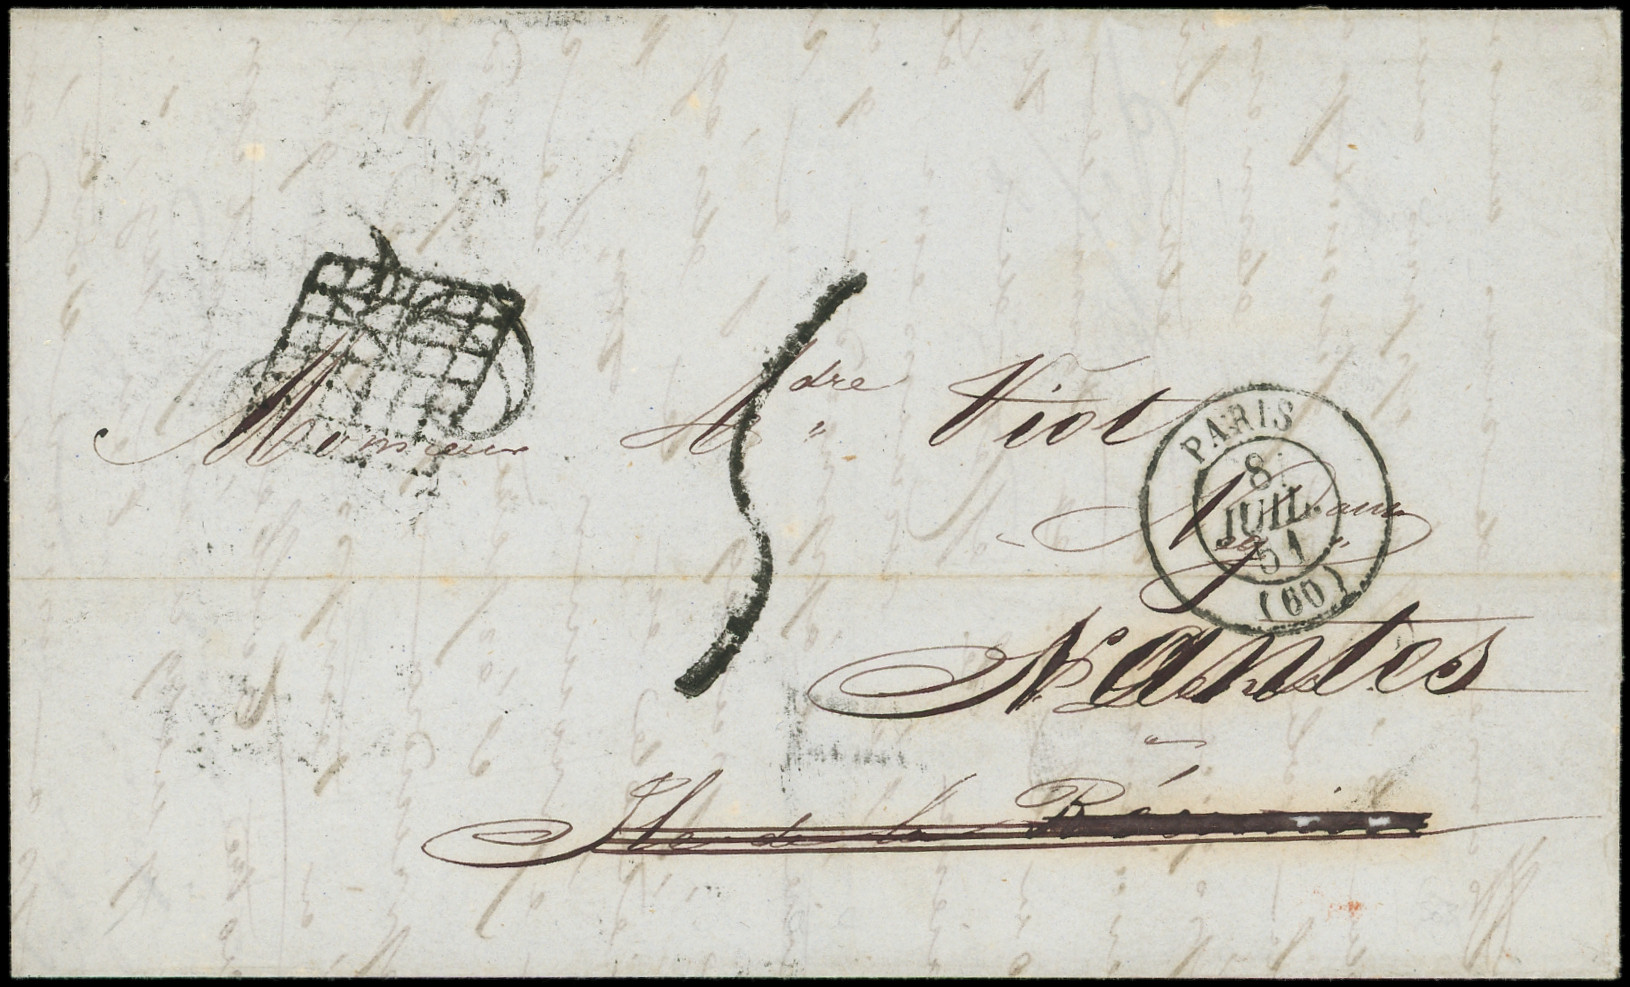 5
Monsieur A^dre Viot
PARIS
8
JUIL.
51
(60)
Nég
Nantes
Ile de la Réunion